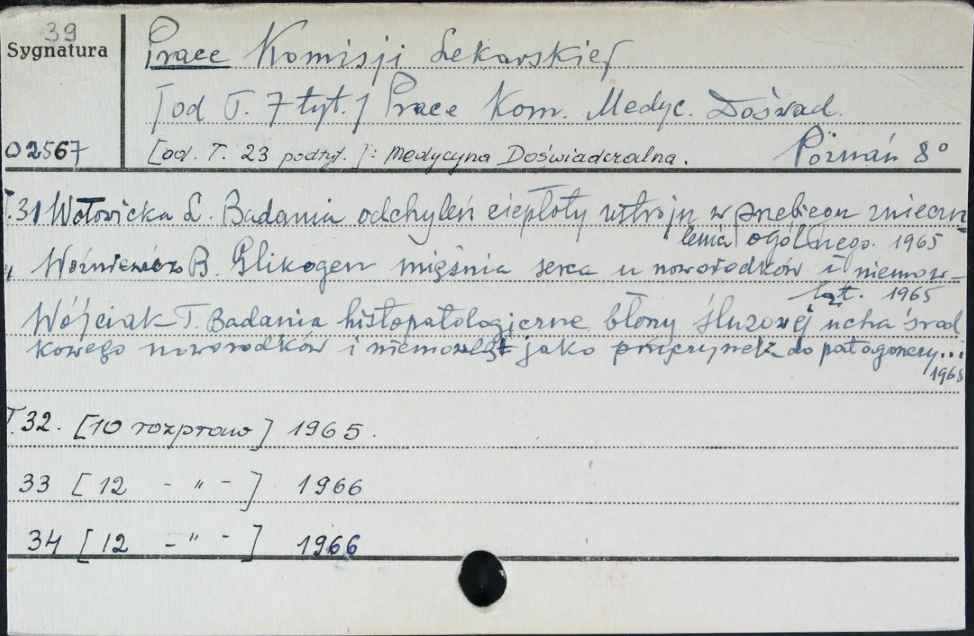 39
Sygnatura
Prace Komisji Lekarskiej
[od T. 7 tyt.] Prace Kom. Medyc. Doświad.
02567
[od. T. 23 podtyt.]: Medycyna Doświadczalna.
Poznań 8°
T.31 Wołowicka L. Badania odchyleń ciepłoty ustroju w przebiegu znieczu-
lenia ogólnego. 1965
„ Woźniewicz B. Glikogen mięśnia serca u noworodków i niemow-
ląt. 1965
Wójciak T. Badania histopatologiczne błony śluzowej ucha środ
kowego noworodków i niemowląt jako przyczynek do patogenezy...
1965
T.32. [10 rozpraw] 1965.
33 [12 - " - ] 1966
34 [12 - " - ] 1966